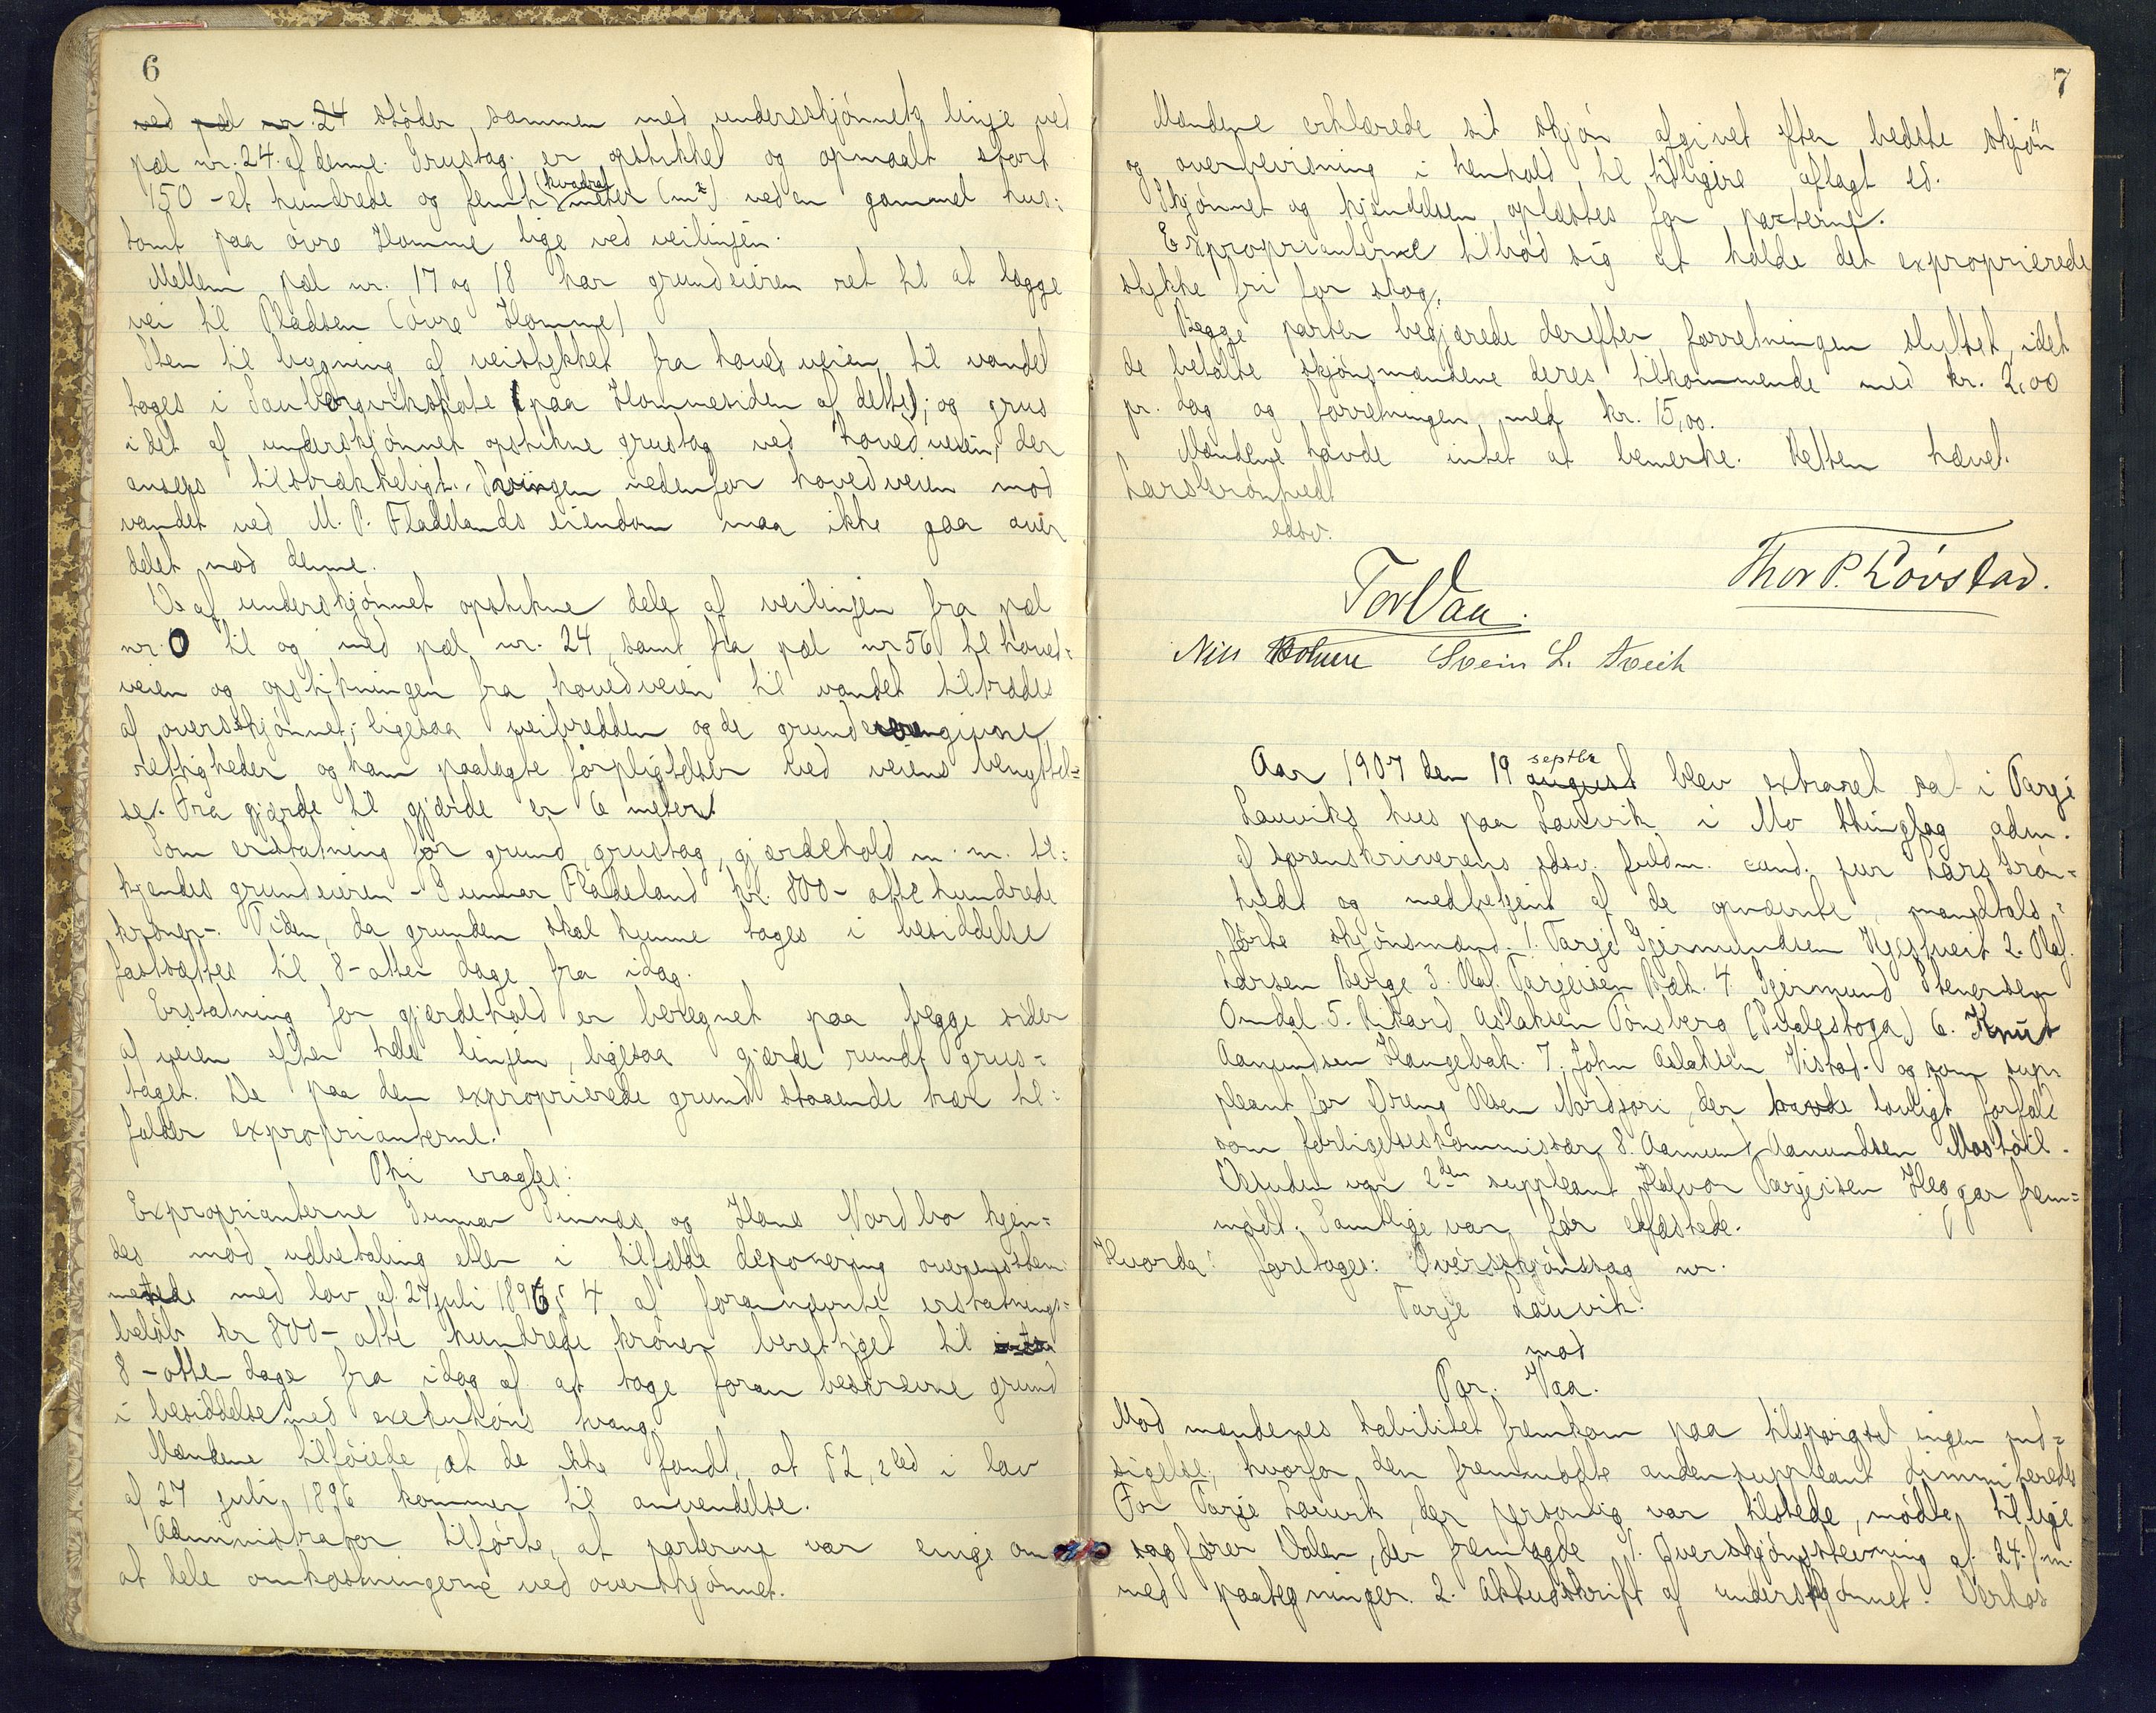 6
ved pæl nr. 24 støder sammen med underskjønnets linje ved
pæl nr. 24 af denne. Grustag er opstikket og opmaalt stort
150 - et hundrede og femti (kvadrat meter (m²) ved en gammel hus=
tomt paa øvre Homme lige ved veilinjen.
Mellem pæl nr. 17 og 18 har grundeieren ret til at lægge
vei til Pladsen (øvre Homme)
Sten til bygning af veistykket fra hovedveien til vandet
tages i paa Hommesiden af dette; og grus
i det af underskjønnet opstikne grustag ved hovedveien, der
ansees tilstrækkeligt. Svingen nedenfor hovedveien mod
vandet ved M. P. Fladelands eiendom maa ikke gaa over
delet mod denne.
De af underskjønnet opstikne dele af veilinjen fra pæl
nr. 0 til og med pæl nr. 24, samt fra pæl nr 56 til hoved=
veien og opstikningen fra hovedveien til vandet tiltrædes
af overskjønnet; ligesaa veibredden og de grundeieren givne
rettigheder og ham paalagte forpligtelser ved veiens benyttel=
se. Fra gjærde til gjærde er 6 meter.
Som erstatning for grund, grustag, gjærdehold m. m. til=
kjendes grundeieren - Gunnar Fladeland kr. 800 - otte hundrede
kroner -. Tiden, da grunden skal kunne tages i besiddelse
fastsættes til 8 - otte dage fra idag.
Erstatning for gjærdehold er beregnet paa begge sider
af veien efter hele linjen, ligesaa gjærde rundt grus=
taget. De paa den exproprierede grund staaende trær til=
falder exproprianterne.
Thi eragtes:
Exproprianterne Gunnar Tinnes og Hans Nordbo kjen=
des mod udbetaling eller i tilfælde deponering overensstem=
mende med lov af 27 juli 1896 § 4 af forannævnte erstatnings=
beløb kr 800 - otte hundrede kroner berettiget til
8 - otte dage fra idag af at tage foran beskrevne grund
i besiddelse med exekutions tvang.
Mændene tilføiede, at de ikke fandt, at § 2, 2 led i lov
af 27 juli 1896 kommer til anvendelse.
Administrator tilførte, at parterne var enige om
at dele omkostningerne ved overskjønnet.
7
Mændene erklærede sit skjøn afgivet efter bedste skjøn
og overbevisning i henhold til tidligere aflagt ed.
Skjønnet og kjendelsen oplæstes for parterne.
Exproprianterne tilbød sig at holde det exproprierede
stykke fri for skog.
Begge parter begjærede derefter forretningen sluttet, idet
de betalte skjønsmændene deres tilkommende med kr. 2,00
pr. dag og forretningen med kr. 15,00.
Mændene havde intet at bemerke. Retten hævet.
Lars Grønhvedt
edsv.
Thor P. Løvstad.
Tor Vaa.
Nils Svein L. Tveit
Aar 1907 den 19 august septbr blev extraret sat i Tarje
Lauviks hus paa Lauvik i Mo thinglag adm.
af sorenskriverens edsv. fuldm. cand. jur Lars Grøn=
hvedt og medbetjent af de opnævnte, mandtals=
førte skjønsmænd. 1. Tarje Gjermundsen Kjestveit 2. Olaf
Larsen Berge 3. Olaf Tarjeisen Bæk. 4. Gjermund Stenersen
Omdal 5. Rikard Aslaksen Tønsberg 6. Knut
Aamundsen Haugebak. 7. John Aslaksen Vistad. og som sup=
pleant for Dreng Olsen Nordjori, der havde lovligt forfald
som forligelseskommissær 8. Aamund Aanundsen Mostøil.
Desuden var 2den suppleant Halvor Tarjeisen Heggar frem=
mødt. Samtlige var før edfæstede.
Hvorda: foretoges: Overskjønssag nr.
Tarje Lauvik.
mod
Tor. Vaa.
Mod mændenes habilitet fremkom paa tilspørgsel ingen ind=
sigelse, hvorfor den fremmødte anden suppleant dimmiteredes
For Tarje Lauvik, der personlig var tilstede, mødte tillige
sagfører Dalen, der fremlagde 1. Overskjønsstevning af 24. f. m.
med paategninger. 2. Aktudskrift af underskjønnet. Derhos